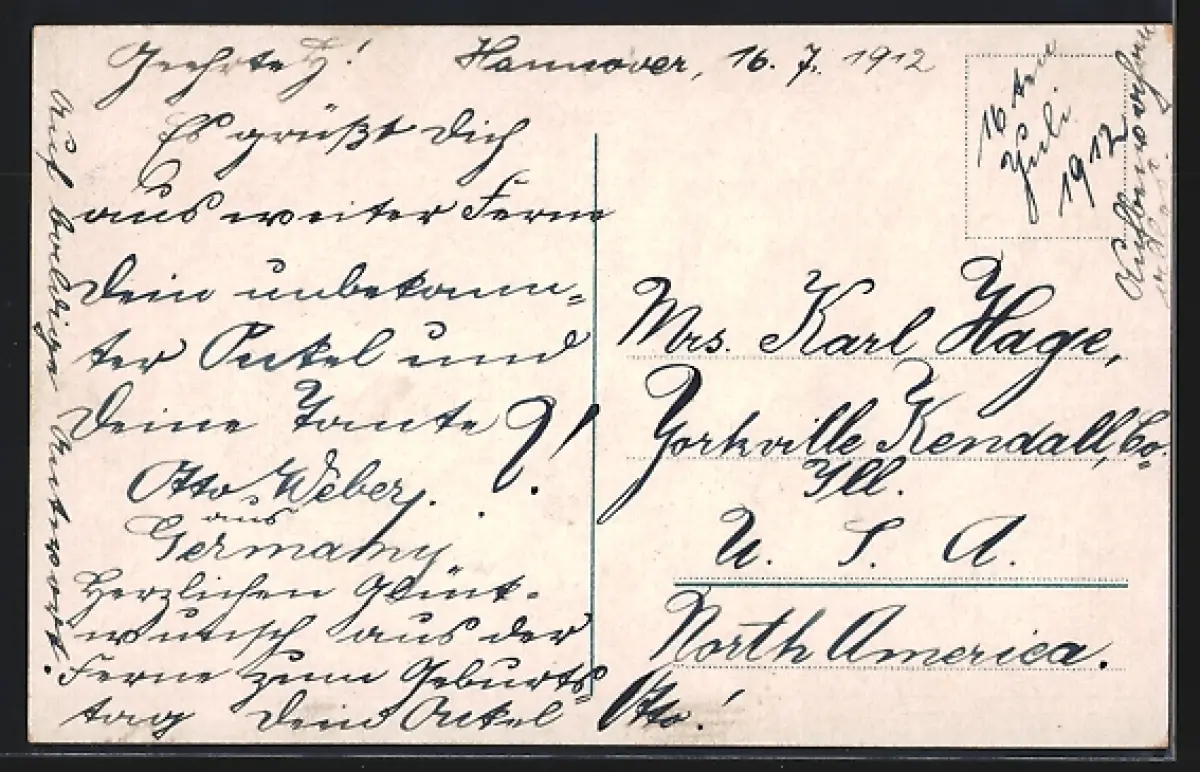 Geehrte H!
Hannover, 16. 7. 1912
Es grüßt Dich
aus weiter Ferne
Dein unbekann-
ter Onkel und
Deine Tante ?!
Otto Weber.
aus
Germany
Herzlichen Glück-
wunsch aus der
Ferne zum Geburts-
tag Dein Onkel Otto!
Auf baldige Antwort.
16ten
Juli
1912
Mrs. Karl Hage,
Yorkville Kendall, Co.
Ill.
U. S. A.
North America.